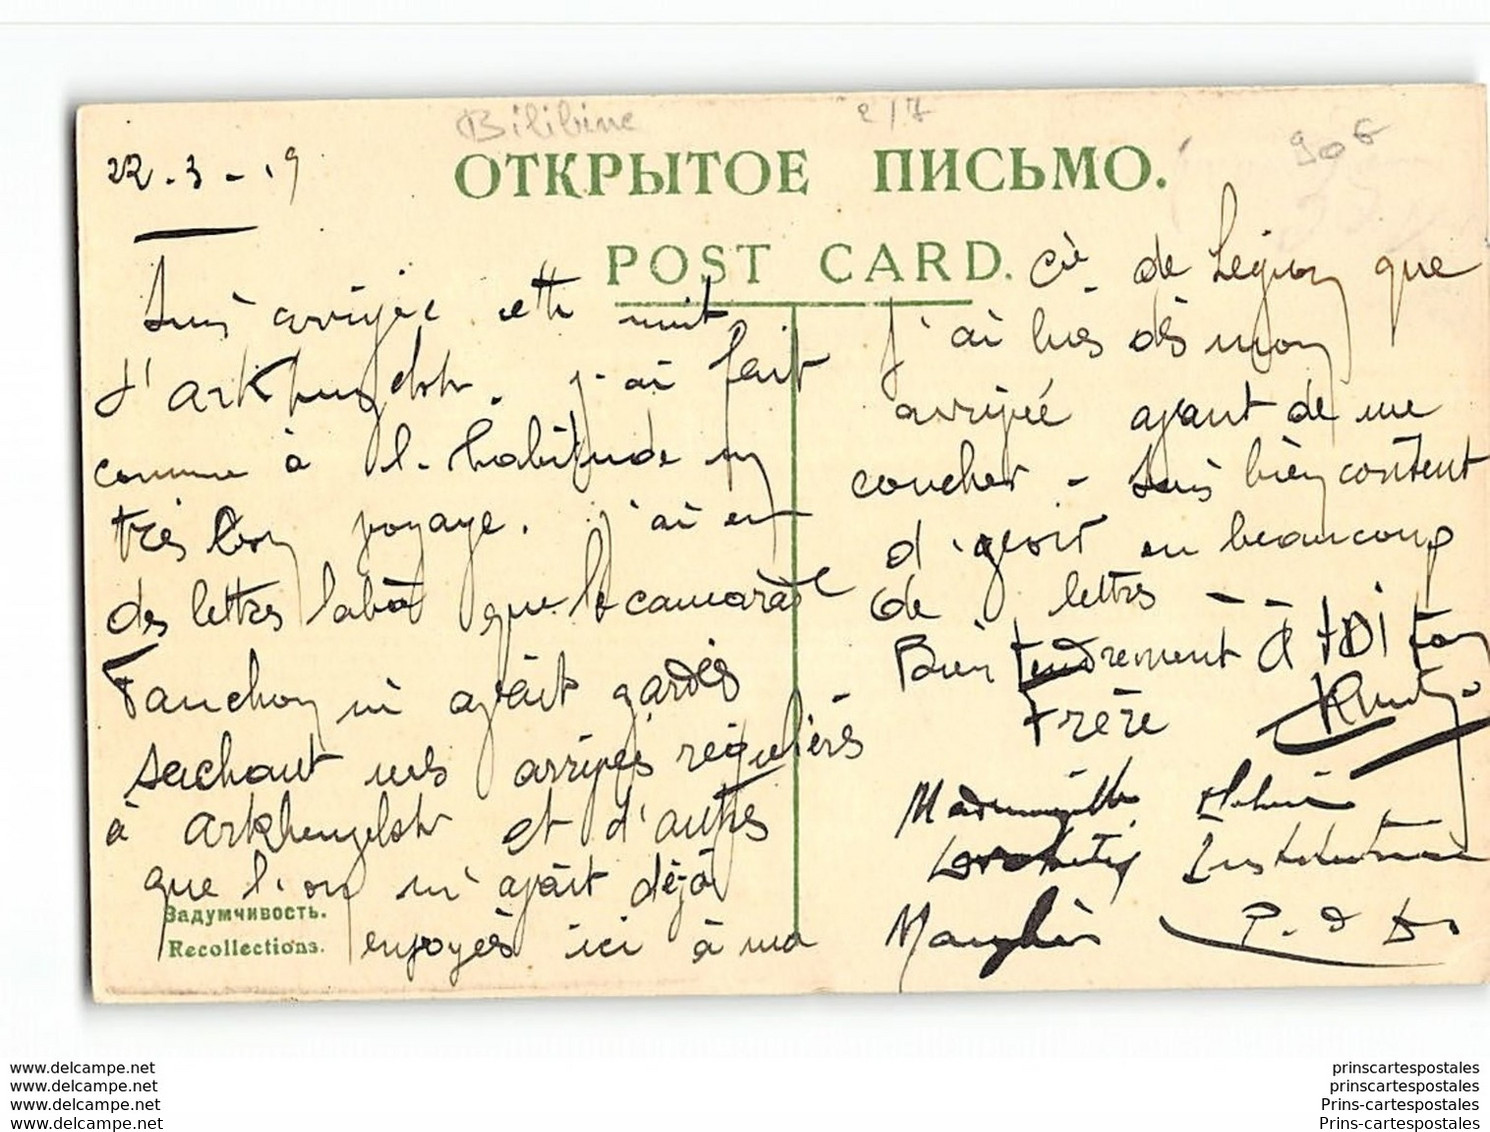 Bilibine
2/7
906
22.3-.19
ОТКРЫТОЕ ПИСЬМО.
POST CARD.
Suis arrivée cette nuit
d'arkhangelsk. j'ai fait
comme à l'habitude un
très bon voyage. j'ai eu
des lettres labà que le camarade
Fanchon m'avait gardés
sachant mes arrivées régulières
à arkhangelsk et d'autres
que l'on m'avait déjà
envoyés ici à ma
Cie de Légion que
j'ai lues dès mon
arrivée avant de me
coucher - suis bien content
d'avoir eu beaucoup
de lettres -
Bien tendrement à toi ton
Frère
Mademoiselle
Institutrice
P. de D.
Задумчивость.
Recollections.
www.delcampe.net
www.delcampe.net
www.delcampe.net
www.delcampe.net
prinscartespostales
prinscartespostales
Prins-cartespostales
Prins-cartespostales